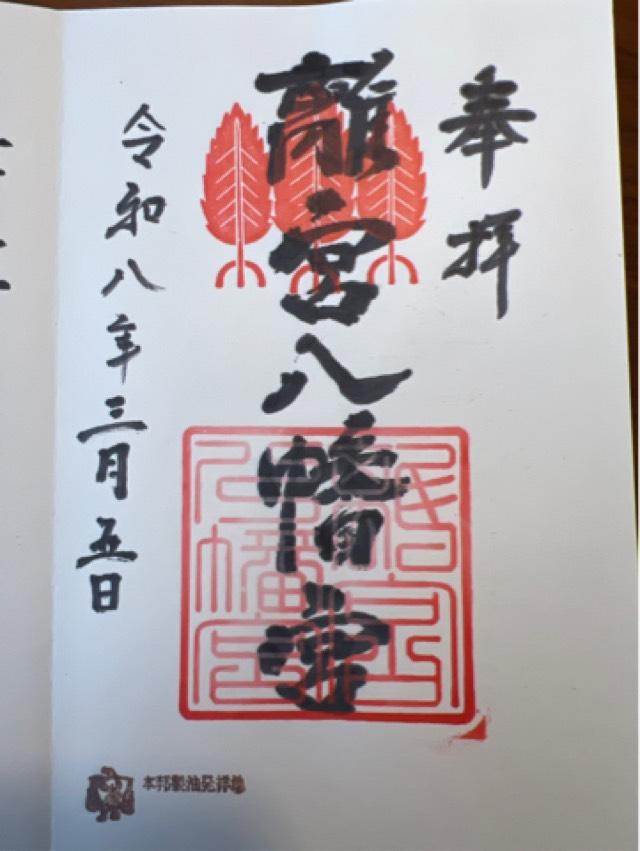 奉拝
離宮八幡宮
令和八年三月五日
本邦製油発祥地